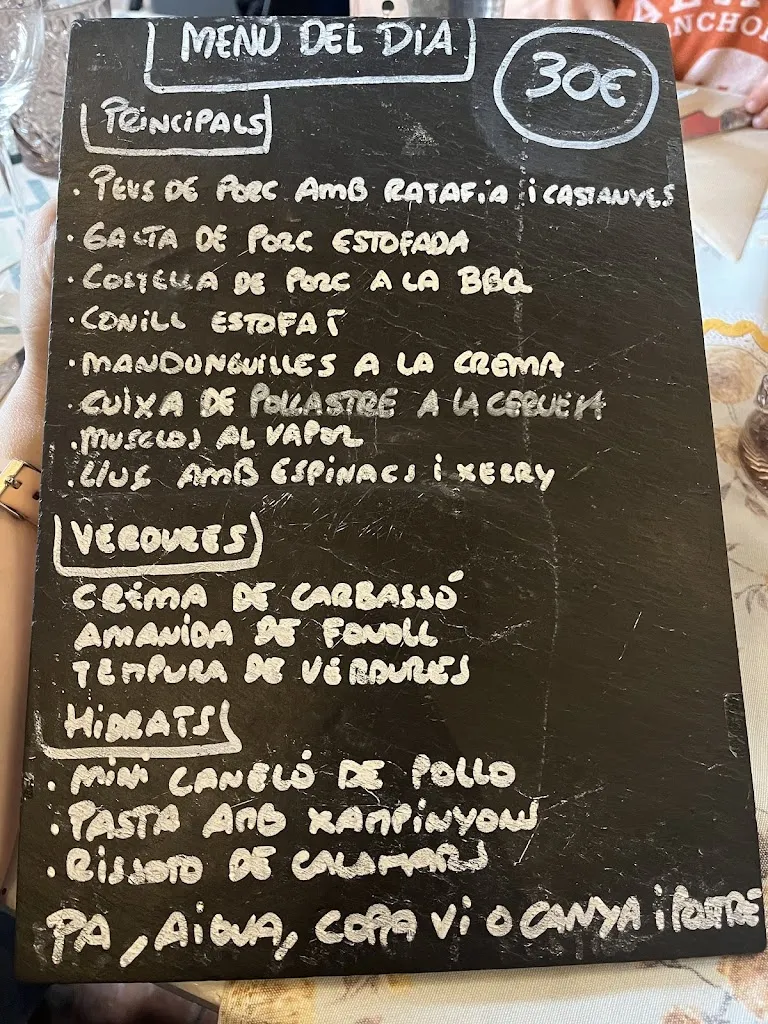 MENÚ DEL DIA
30€
PRINCIPALS
· PEUS DE PORC AMB RATAFIA i CASTANYES
· GALTA DE PORC ESTOFADA
· COSTELLA DE PORC A LA BBQ
· CONILL ESTOFAT
· MANDUNGUILLES A LA CREMA
· CUIXA DE POLLASTRE A LA CERVEZA
· MUSCLOS AL VAPOR
· LLUÇ AMB ESPINACS i XERRY
VERDURES
CREMA DE CARBASSÓ
AMANIDA DE FONOLL
TEMPURA DE VERDURES
HIDRATS
· MINI CANELÓ DE POLLO
· PASTA AMB XAMPINYONS
· RISSOTO DE CALAMARS
PA, AIGUA, COPA VI O CANYA i POSTRE
NCHO